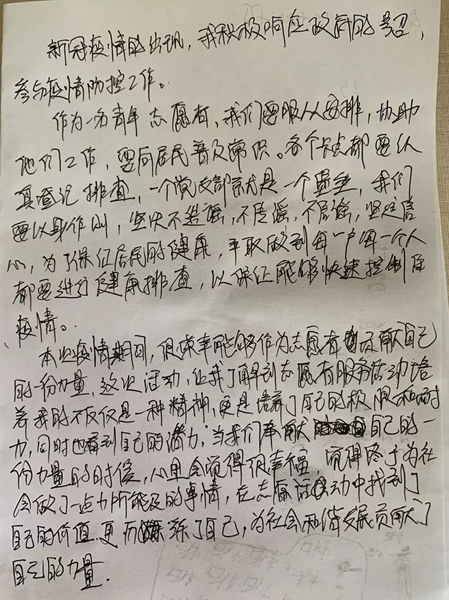 新冠疫情的出现，我积极响应政府的号召，
参与疫情防控工作。
作为一名青年志愿者，我们要服从安排，协助
他们工作，要向居民普及常识。各个卡点都要认
真登记排查，一个党支部就是一个堡垒，我们
要以身作则，坚决不造谣，不信谣，不传谣，坚定信
心，为了保证居民的健康，争取做到每一户每一个人
都要进行健康排查，以保证能够快速控制住
疫情。
本次疫情期间，很荣幸能够作为志愿者贡献自己
的一份力量，这次活动，让我了解到志愿者服务活动培
养我的不仅仅是一种精神，更是培养了自己的和耐
力，同时也看到自己的潜力，当我们奉献自己的一
份力量的时候，心里会觉得很幸福，觉得终于为社
会做了一点力所能及的事情，在志愿活动中找到了
自己的价值，更而锻炼了自己，为社会和谐发展贡献了
自己的力量.